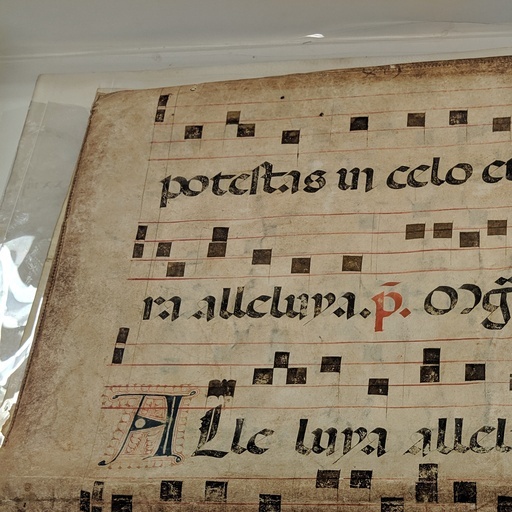 potestas in celo e
ra alleluya. p̃. Mag̃
ALle luya allel